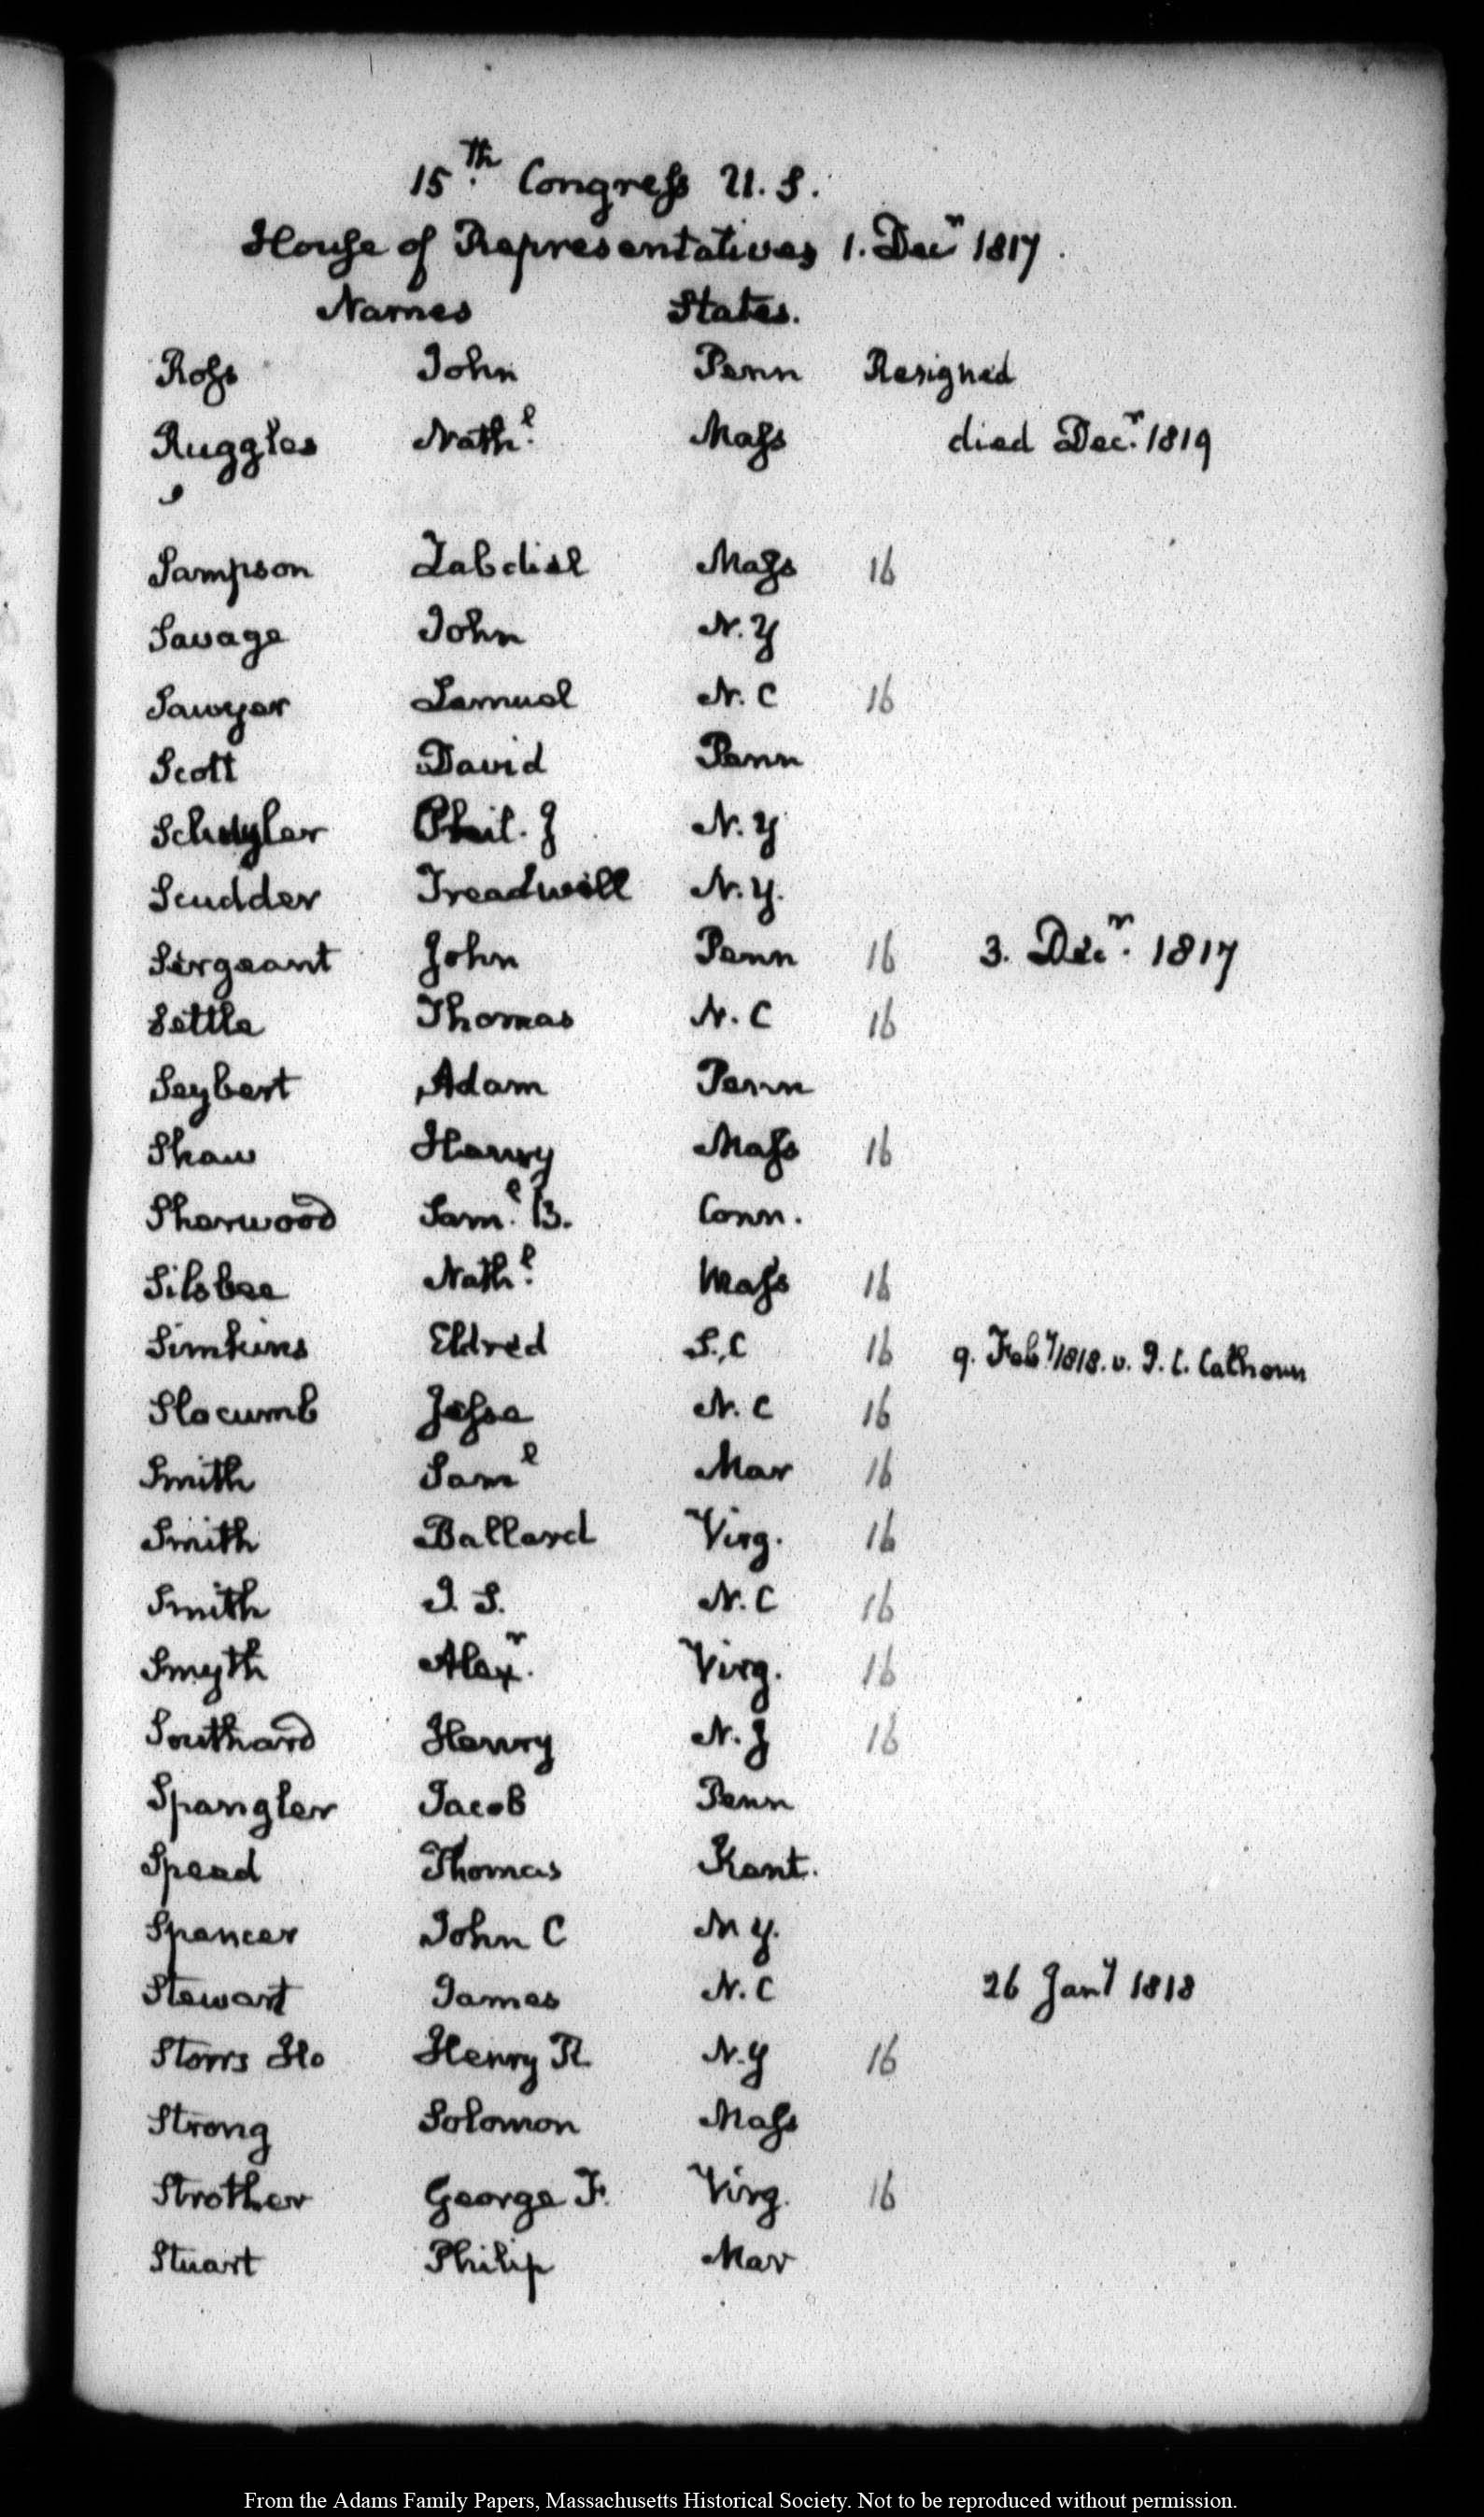 15th. Congress U. S.
House of Representatives 1. Decr 1817.
Names States.
Ross John Penn Resigned
Ruggles Nathl. Mass died Decr. 1819
Sampson Zabdiel Mass 16
Savage John N. Y
Sawyer Lemuel N. C 16
Scott David Penn
Schuyler Phil. J N. Y
Scudder Treadwell N. Y.
Sergeant John Penn 16 3. Decr. 1817
Settle Thomas N. C 16
Seybert Adam Penn
Shaw Henry Mass 16
Sherwood Saml. B. Conn.
Silsbee Nathl. Mass 16
Simkins Eldred S. C 16 9. Feby 1818. v. J. C. Calhoun
Slocumb Jesse N. C 16
Smith Saml Mar 16
Smith Ballard Virg. 16
Smith J. S. N. C 16
Smyth Alexr. Virg. 16
Southard Henry N. J 16
Spangler Jacob Penn
Speed Thomas Kent.
Spencer John C N Y.
Stewart James N. C 26 Jany 1818
Storrs Ho Henry R N. Y 16
Strong Solomon Mass
Strother George F. Virg. 16
Stuart Philip Mar
From the Adams Family Papers, Massachusetts Historical Society. Not to be reproduced without permission.